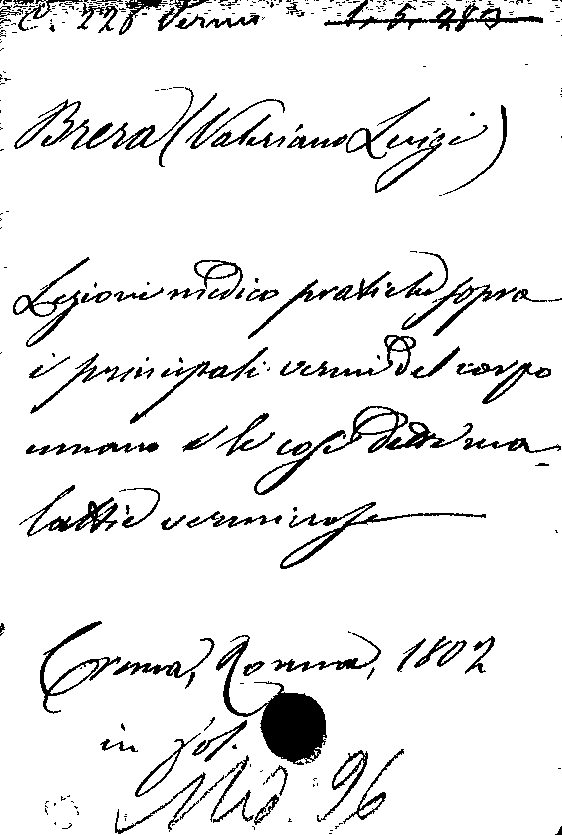 C. 226 Vermi 1. 5. 283
Brera (Valeriano Luigi)
Lezioni medico pratiche sopra
i principali vermi del corpo
umano e le così dette ma-
lattie verminose
Crema, Ronna, 1802
in fol.
Med. 96